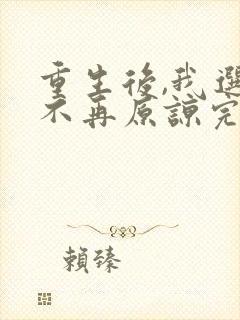 重生後,我選
不再原諒完
賴臻